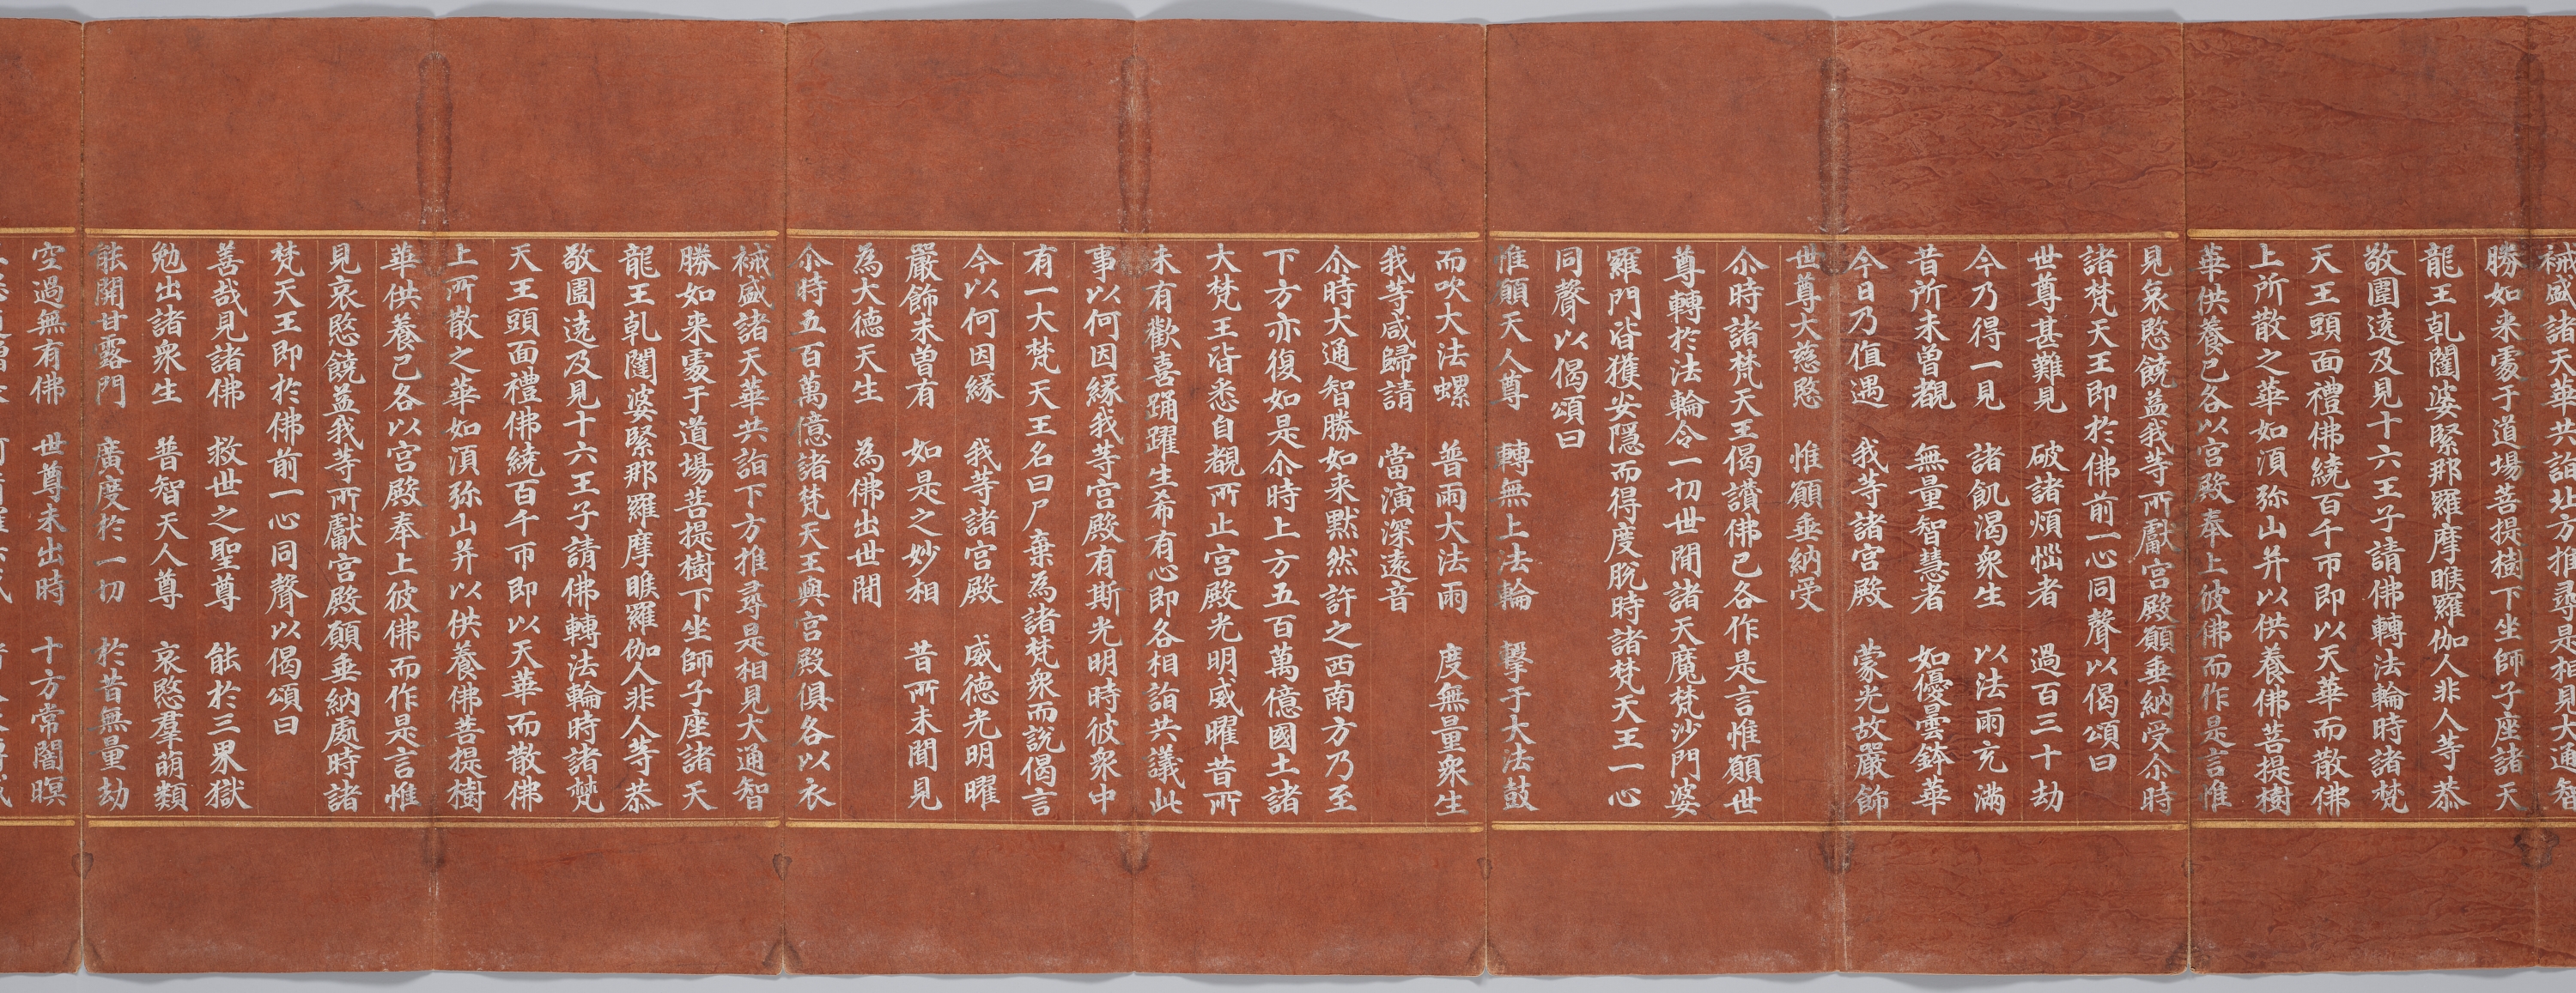 祴盛諸天華共詣北方推尋是相見大通智
勝如来處于道場菩提樹下坐師子座諸天
龍王乹闥婆緊那羅摩睺羅伽人非人等恭
敬圍遶及見十六王子請佛轉法輪時諸梵
天王頭面禮佛繞百千帀即以天華而散佛
上所散之華如湏弥山并以供養佛菩提樹
華供養已各以宮殿奉上彼佛而作是言惟
見哀愍饒益我等所獻宮殿願垂納受尒時
諸梵天王即於佛前一心同聲以偈頌曰
世尊甚難見　破諸煩惱者　過百三十劫
今乃得一見　諸飢渴衆生　以法雨充滿
昔所未曽覩　無量智慧者　如優曇鉢華
今日乃值遇　我等諸宮殿　蒙光故嚴飾
世尊大慈愍　惟願垂納受
尒時諸梵天王偈讚佛已各作是言惟願世
尊轉於法輪令一切世間諸天魔梵沙門婆
羅門皆獲安隱而得度脫時諸梵天王一心
同聲以偈頌曰
惟願天人尊　轉無上法輪　擊于大法鼓
而吹大法螺　普雨大法雨　度無量衆生
我等咸歸請　當演深遠音
尒時大通智勝如来默然許之西南方乃至
下方亦復如是尒時上方五百萬億國土諸
大梵王皆悉自覩所止宮殿光明威曜昔所
未有歡喜踊躍生希有心即各相詣共議此
事以何因緣我等宮殿有斯光明時彼衆中
有一大梵天王名曰尸棄為諸梵衆而說偈言
今以何因緣　我等諸宮殿　威德光明曜
嚴飾未曽有　如是之妙相　昔所未聞見
為大德天生　為佛出世間
尒時五百萬億諸梵天王與宮殿俱各以衣
祴盛諸天華共詣下方推尋是相見大通智
勝如来處于道場菩提樹下坐師子座諸天
龍王乹闥婆緊那羅摩睺羅伽人非人等恭
敬圍遶及見十六王子請佛轉法輪時諸梵
天王頭面禮佛繞百千帀即以天華而散佛
上所散之華如湏弥山并以供養佛菩提樹
華供養已各以宮殿奉上彼佛而作是言惟
見哀愍饒益我等所獻宮殿願垂納處時諸
梵天王即於佛前一心同聲以偈頌曰
善哉見諸佛　救世之聖尊　能於三界獄
勉出諸衆生　普智天人尊　哀愍羣萌類
能開甘露門　廣度於一切　於昔無量劫
空過無有佛　世尊未出時　十方常闇暝